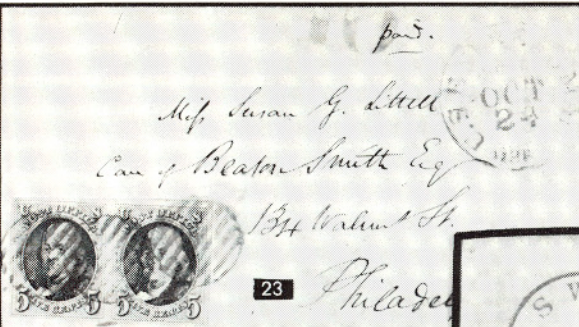 paid.
Miss Susan G. Littell
Care of Beaton Smith Esq
OCT
24
134 Walnut St.
Philadel
23
POST OFFICE
FIVE CENTS
5 5
POST OFFICE
FIVE CENTS
5 5
S W